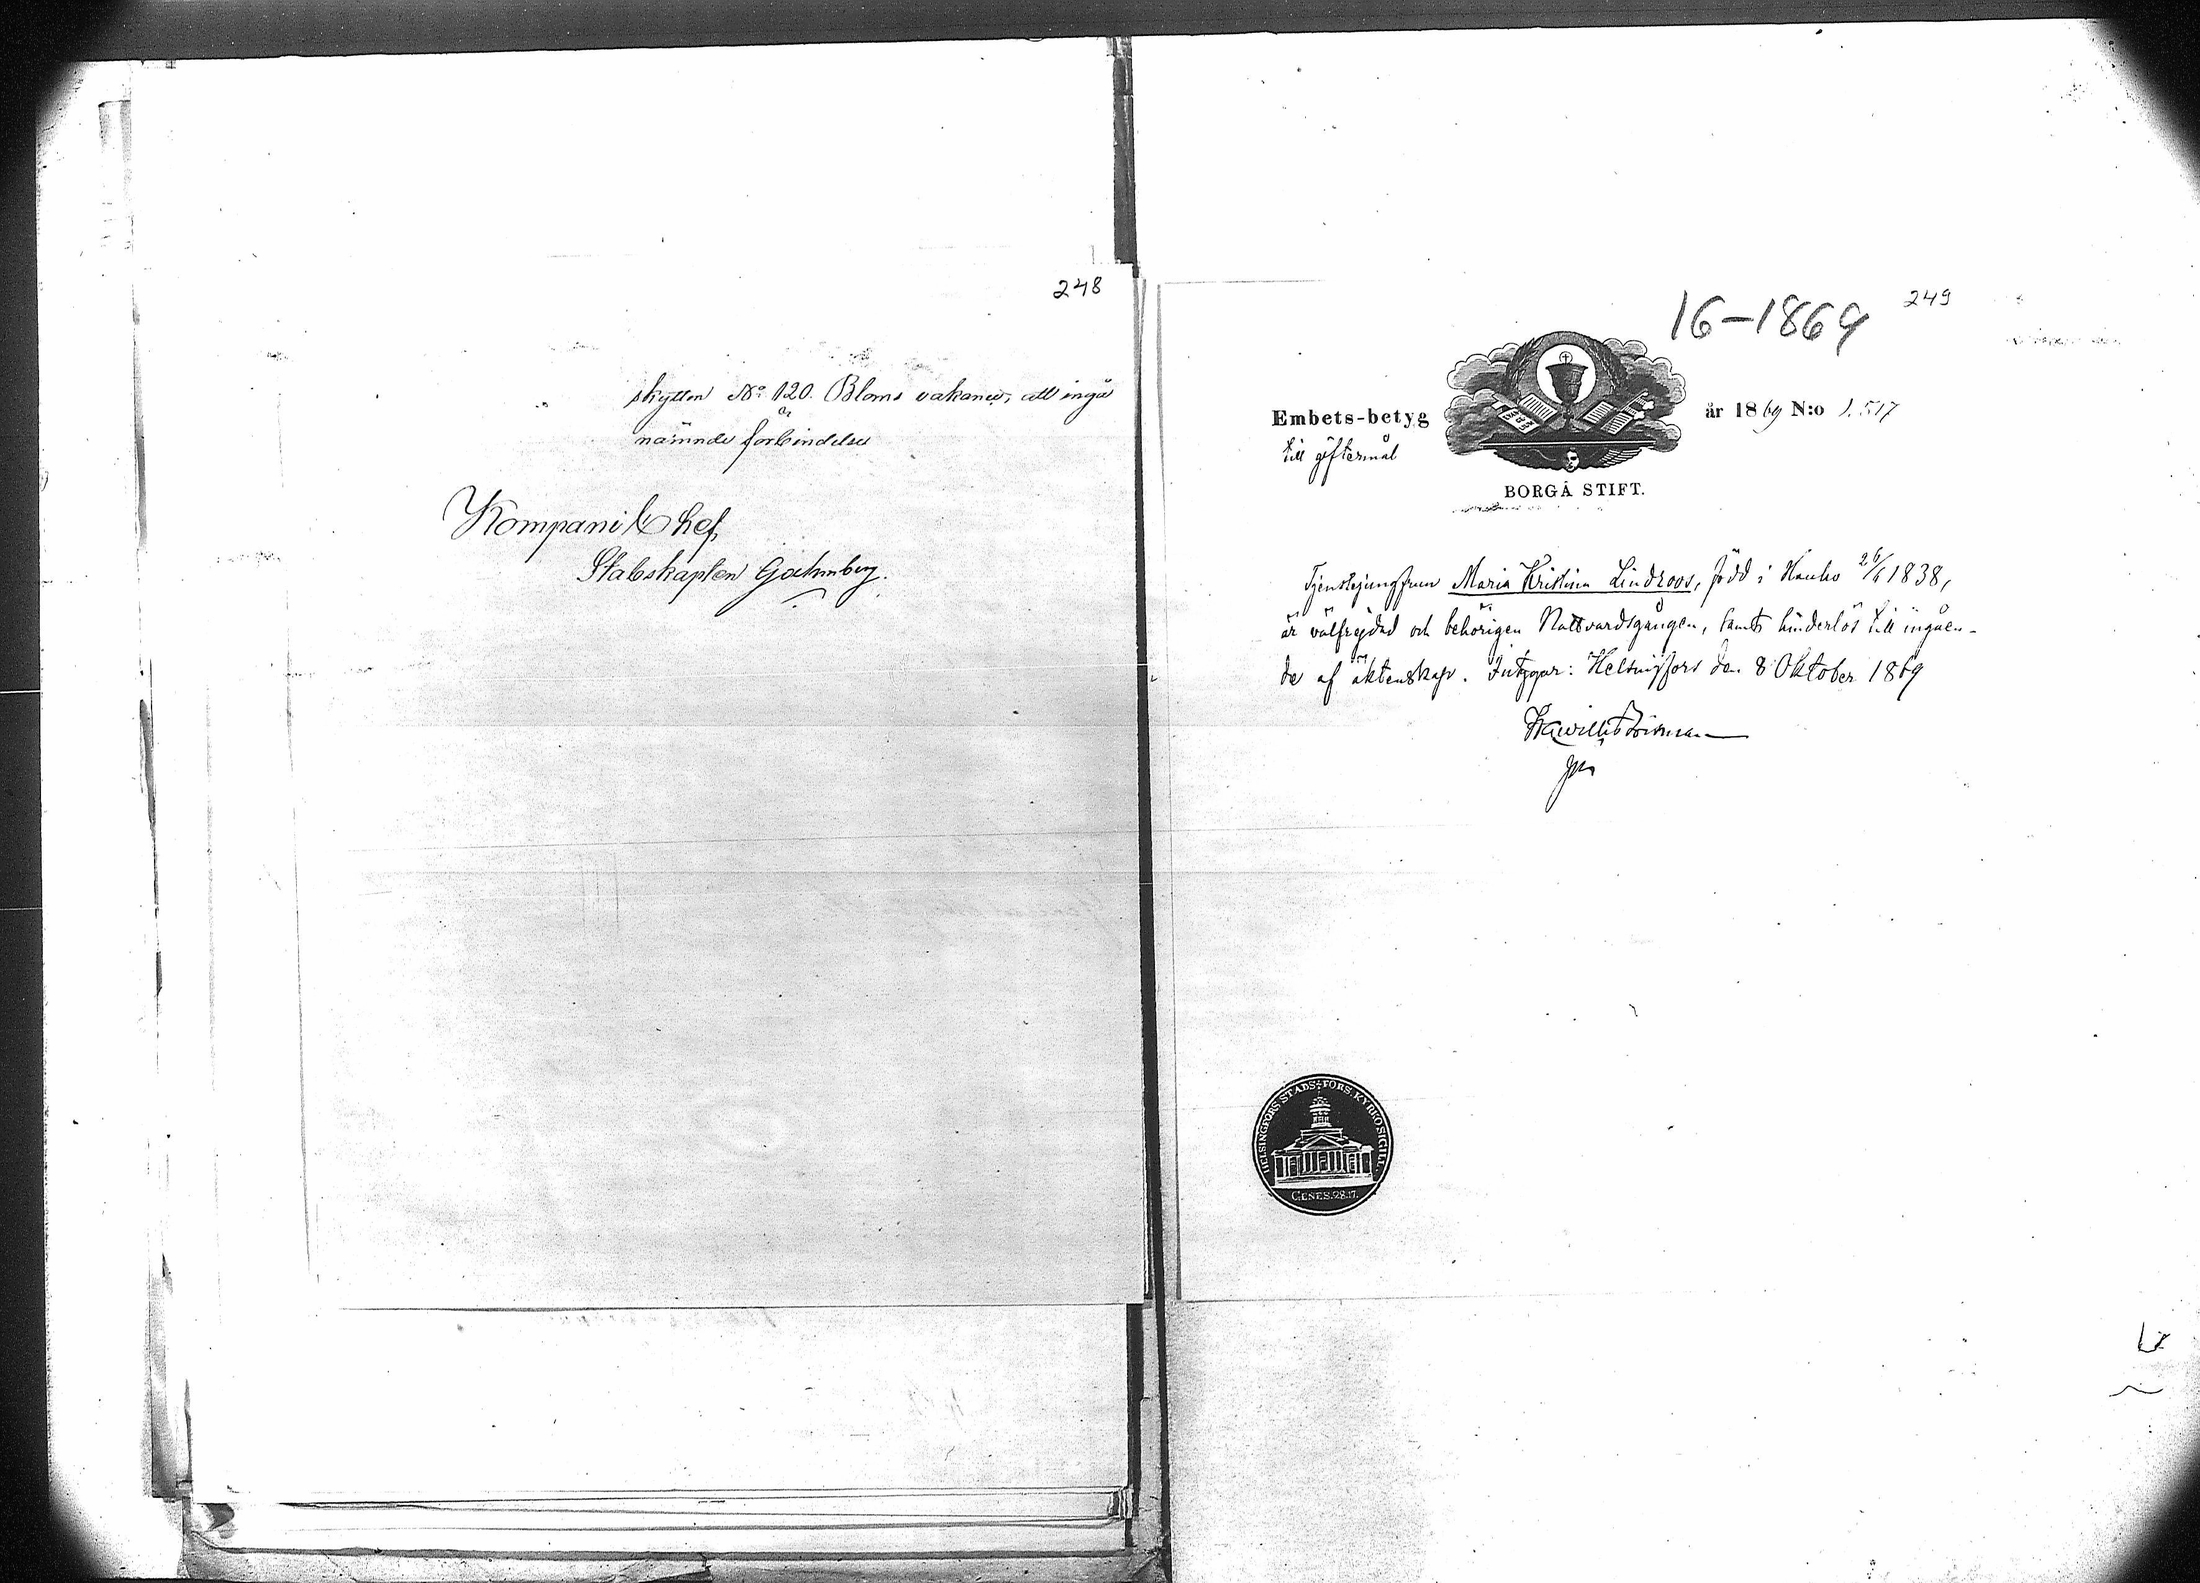 248
skytten No: 120. Bloms vakans, att ingå
nämnde förbindelse
Kompani Chef,
Stabskapten
249
16-1869
Embets-betyg
till giftermål
år 1869 N:o 1,517
BORGÅ STIFT.
Tjenstejungfrun Maria Kristina Lindroos, född i Hauho 1838,
är välfrejdad och behörigen Nattvardsgången, samt hinderlös till ingåen-
de af äktenskap. Intygar: Helsingfors den 8 Oktober 1869
HELSINGFORS STADS FÖRS: KYRKOSIGILL.
GENES. 28. 17.